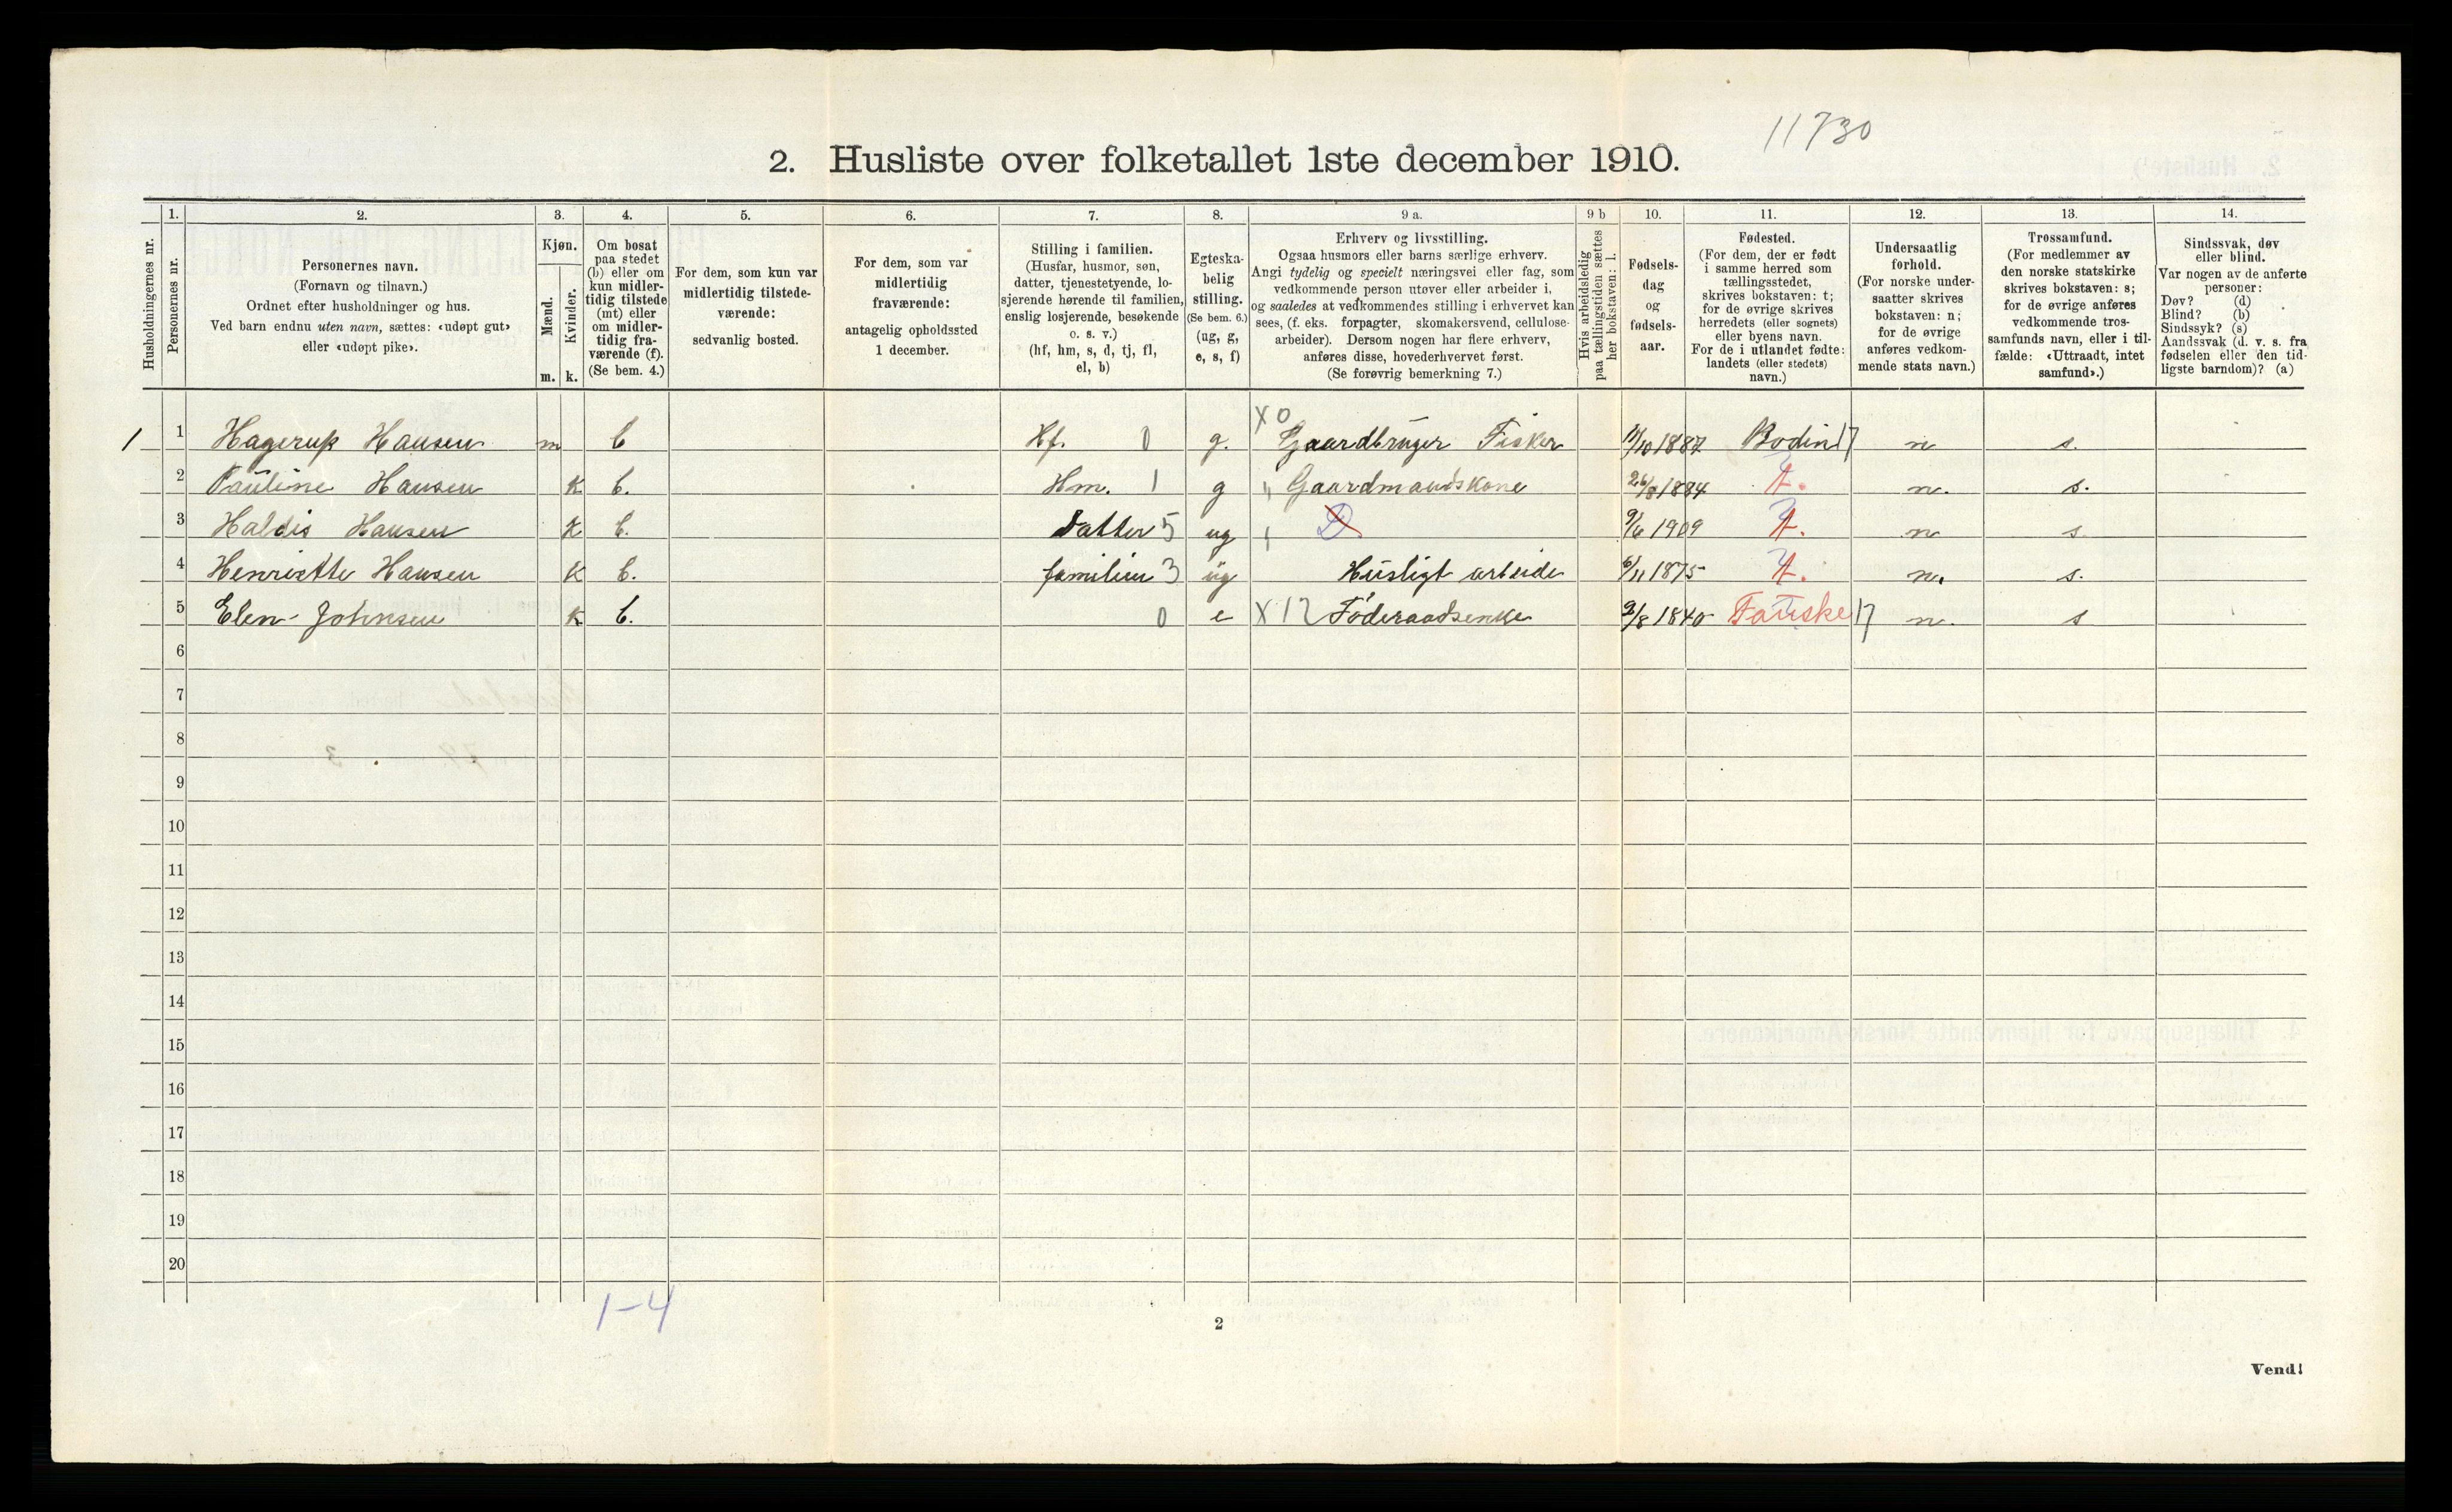 11730
2. Husliste over folketallet 1ste december 1910.
Husholdningernes nr.
1.
Personernes nr.
2.
Personernes navn.
(Fornavn og tilnavn.)
Ordnet efter husholdninger og hus.
Ved barn endnu uten navn, sættes: «udøpt gut»
eller «udøpt pike».
3.
Kjøn.
Mænd.
m.
Kvinder.
k.
4.
Om bosat
paa stedet
(b) eller om
kun midler-
tidig tilstede
(mt) eller
om midler-
tidig fra-
værende (f).
(Se bem. 4.)
5.
For dem, som kun var
midlertidig tilstede-
værende:
sedvanlig bosted.
6.
For dem, som var
midlertidig
fraværende:
antagelig opholdssted
1 december.
7.
Stilling i familien.
(Husfar, husmor, søn,
datter, tjenestetyende, lo-
sjerende hørende til familien,
enslig losjerende, besøkende
o. s. v.)
(hf, hm, s, d, tj, fl,
el, b)
8.
Egteska-
belig
stilling.
(Se bem. 6.)
(ug, g,
e, s, f)
9 a.
Erhverv og livsstilling.
Ogsaa husmors eller barns særlige erhverv.
Angi tydelig og specielt næringsvei eller fag, som
vedkommende person utøver eller arbeider i,
og saaledes at vedkommendes stilling i erhvervet kan
sees, (f. eks. forpagter, skomakersvend, cellulose-
arbeider). Dersom nogen har flere erhverv,
anføres disse, hovederhvervet først.
(Se forøvrig bemerkning 7.)
9 b
Hvis arbeidsledig
paa tællingstiden sættes
her bokstaven: l.
10.
Fødsels-
dag
og
fødsels-
aar.
11.
Fødested.
(For dem, der er født
i samme herred som
tællingsstedet,
skrives bokstaven: t;
for de øvrige skrives
herredets (eller sognets)
eller byens navn.
For de i utlandet fødte:
landets (eller stedets)
navn.)
12.
Undersaatlig
forhold.
(For norske under-
saatter skrives
bokstaven: n;
for de øvrige
anføres vedkom-
mende stats navn.)
13.
Trossamfund.
(For medlemmer av
den norske statskirke
skrives bokstaven: s;
for de øvrige anføres
vedkommende tros-
samfunds navn, eller i til-
fælde: «Uttraadt, intet
samfund».)
14.
Sindssvak, døv
eller blind.
Var nogen av de anførte
personer:
Døv? (d)
Blind? (b)
Sindssyk? (s)
Aandssvak (d. v. s. fra
fødselen eller den tid-
ligste barndom)? (a)
1 1 Hagerup Hansen m b Hf. 0 g. X0 Gaardbruger Fisker 11/10 1887 Bodin 17 n s.
2 Pauline Hansen K b. Hm. 1 g " Gaardmandskone 26/8 1884 t. n. s.
3 Haldis Hansen K b. Datter 5 ug " D 9/6 1909 t. n s
4 Henriette Hansen K b. familien 3 ug Husligt arbeide 6/11 1875 t. n. s.
5 Elen Johnsen K b. 0 e X12 Føderaadsenke 2/8 1840 Fauske 17 n. s
6
7
8
9
10
11
12
13
14
15
16
17
18
19
20
1-4
2
Vend!